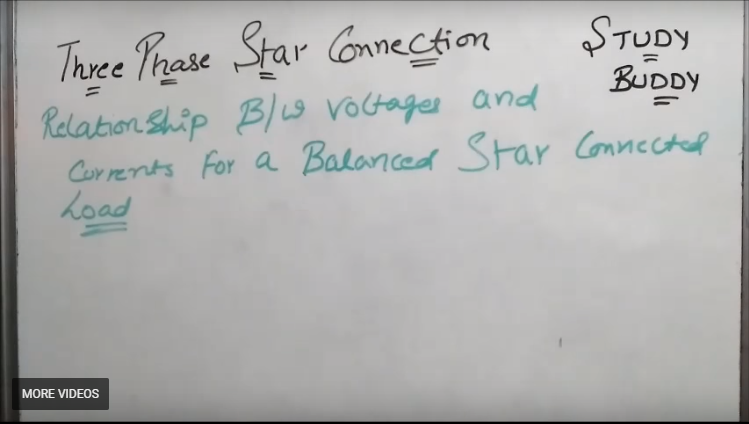 Three Phase Star Connection
STUDY
BUDDY
Relationship B/w Voltages and
Currents For a Balanced Star Connected
Load
MORE VIDEOS